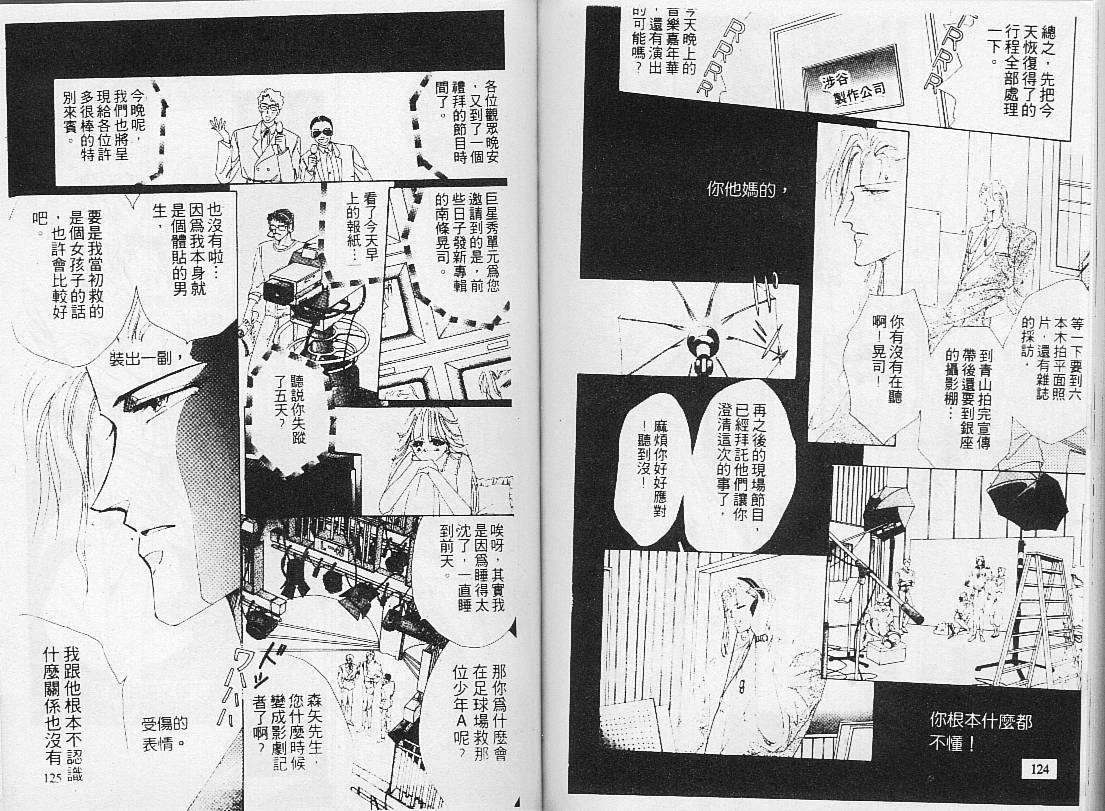 總之，先把今
天恢復得了的
行程全部處理
一下。
RRRR
涉谷
製作公司
RRRR
今天晚上的
音樂嘉年華
，還有演出
的可能嗎？
你他媽的，
等一下要到六
本木拍平面照
片，還有雜誌
的採訪．
到青山拍完宣傳
帶後還要到銀座
的攝影棚…
你有沒有在聽
啊！晃司！
再之後的現場節目，
已經拜託他們讓你
澄清這次的事了，
麻煩你好好應對
！聽到沒！
你根本什麼都
不懂！
124
各位觀眾晚安
，又到了一個
禮拜的節目時
間了。
今晚呢，
我們也將呈
現給各位許
多很棒的特
別來賓。
巨星秀單元爲您
邀請到的是，前
些日子發新專輯
的南條晃司。
看了今天早
上的報紙…
聽說你失蹤
了五天？
唉呀，其實我
是因爲睡得太
沈了，一直睡
到前天。
那你爲什麼會
在足球場救那
位少年A呢？
森矢先生，
您什麼時候
變成影劇記
者了啊？
ワハハハ
也沒有啦…
因爲我本身就
是個體貼的男
生，
要是我當初救的
是個女孩子的話
，也許會比較好
吧。
裝出一副，
受傷的
表情。
我跟他根本不認識，
什麼關係也沒有
125